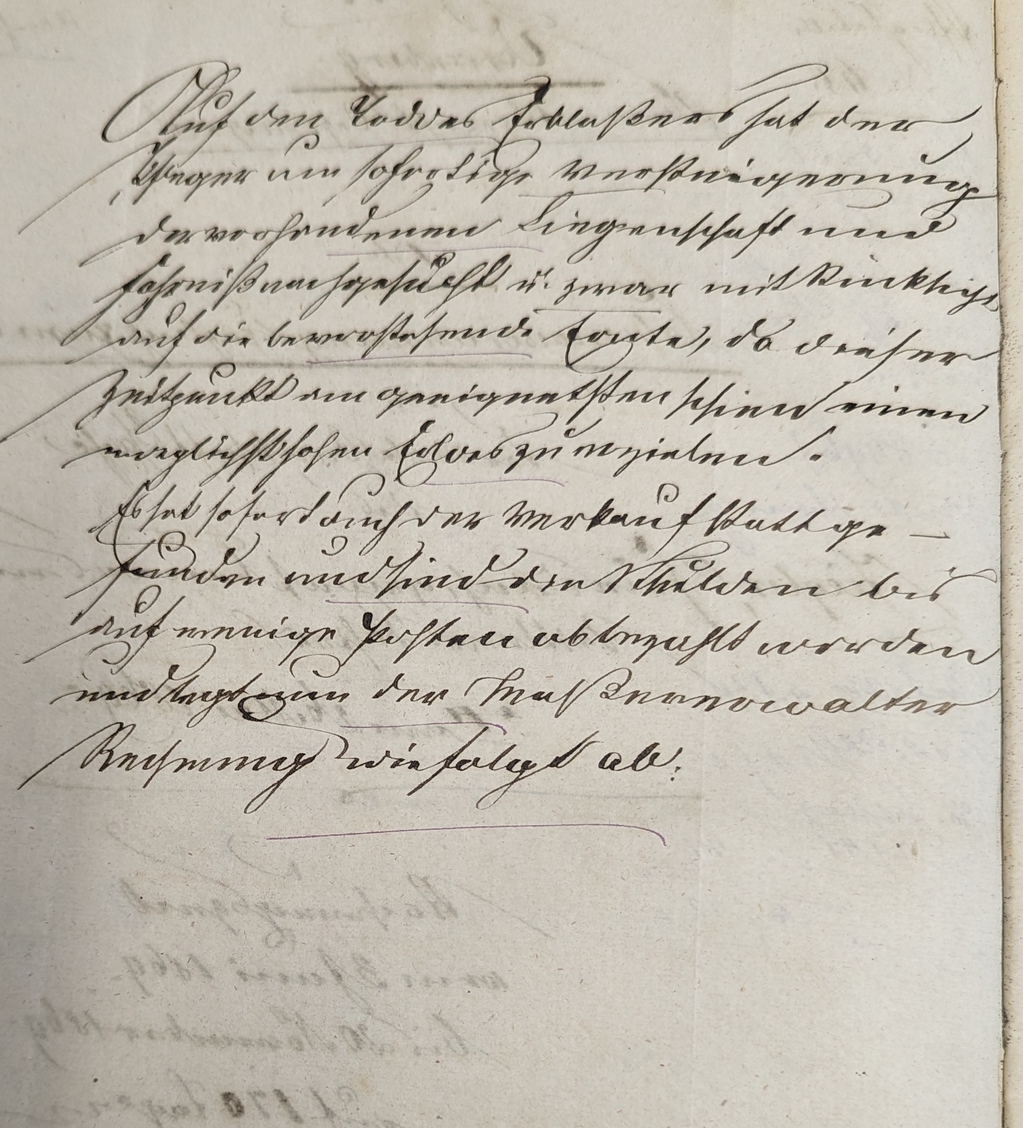 Auf den Tod des Erblaßers hat der
Pfleger um sofortige Versteigerung
der vorhandenen Liegenschaft und
Fahrniß nachgesucht u. zwar mit Rücksicht
auf die bevorstehende Ernte, da dieser
Zeitpunkt am geeignetsten schien einen
moeglichst hohen Erloes zu erzielen.
Es hat sofort auch der Verkauf statt ge-
funden und sind die Schulden bis
auf wenige Posten abbezahlt worden
und legt nun der Maßeverwalter
Rechnung wie folgt ab: